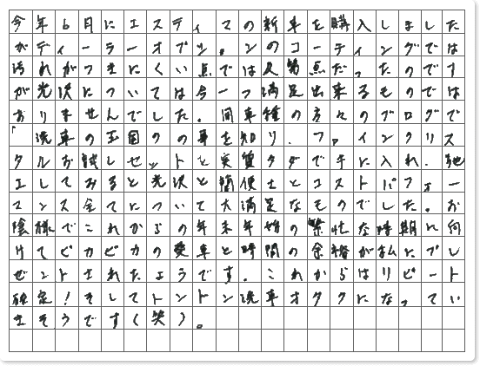 今年6月にエスティマの新車を購入しました
がディーラーオプションのコーティングでは
汚れがつきにくい点では及第点だったのです
が光沢については今一つ満足出来るものでは
ありませんでした。同車種の方々のブログで
「洗車の王国」の事を知り、ファインクリス
タルお試しセットを実質タダで手に入れ、施
工してみると光沢と簡便さとコストパフォー
マンス全てについて大満足なものでした。お
陰様でこれからの年末年始の繁忙な時期に向
けてピカピカの愛車と時間の余裕が私にプレ
ゼントされたようです。これからはリピート
確定！そしてトントン洗車オタクになってい
きそうです(笑)。